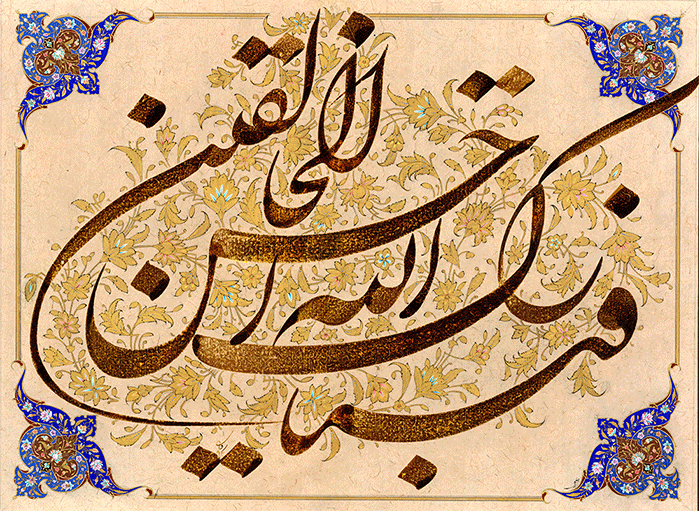 فتبارك الله احسن الخالقین